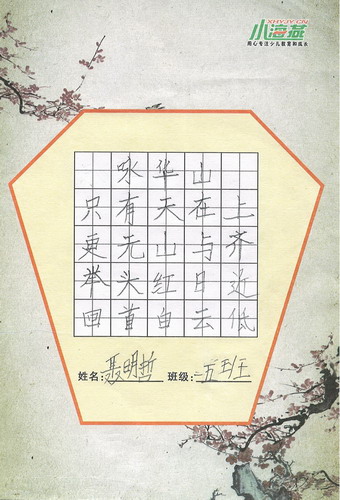 XHYJY.CN
小海燕
用心专注少儿教育和成长
咏华山
只有天在上
更无山与齐
举头红日近
回首白云低
姓名:聂明哲 班级:一五班